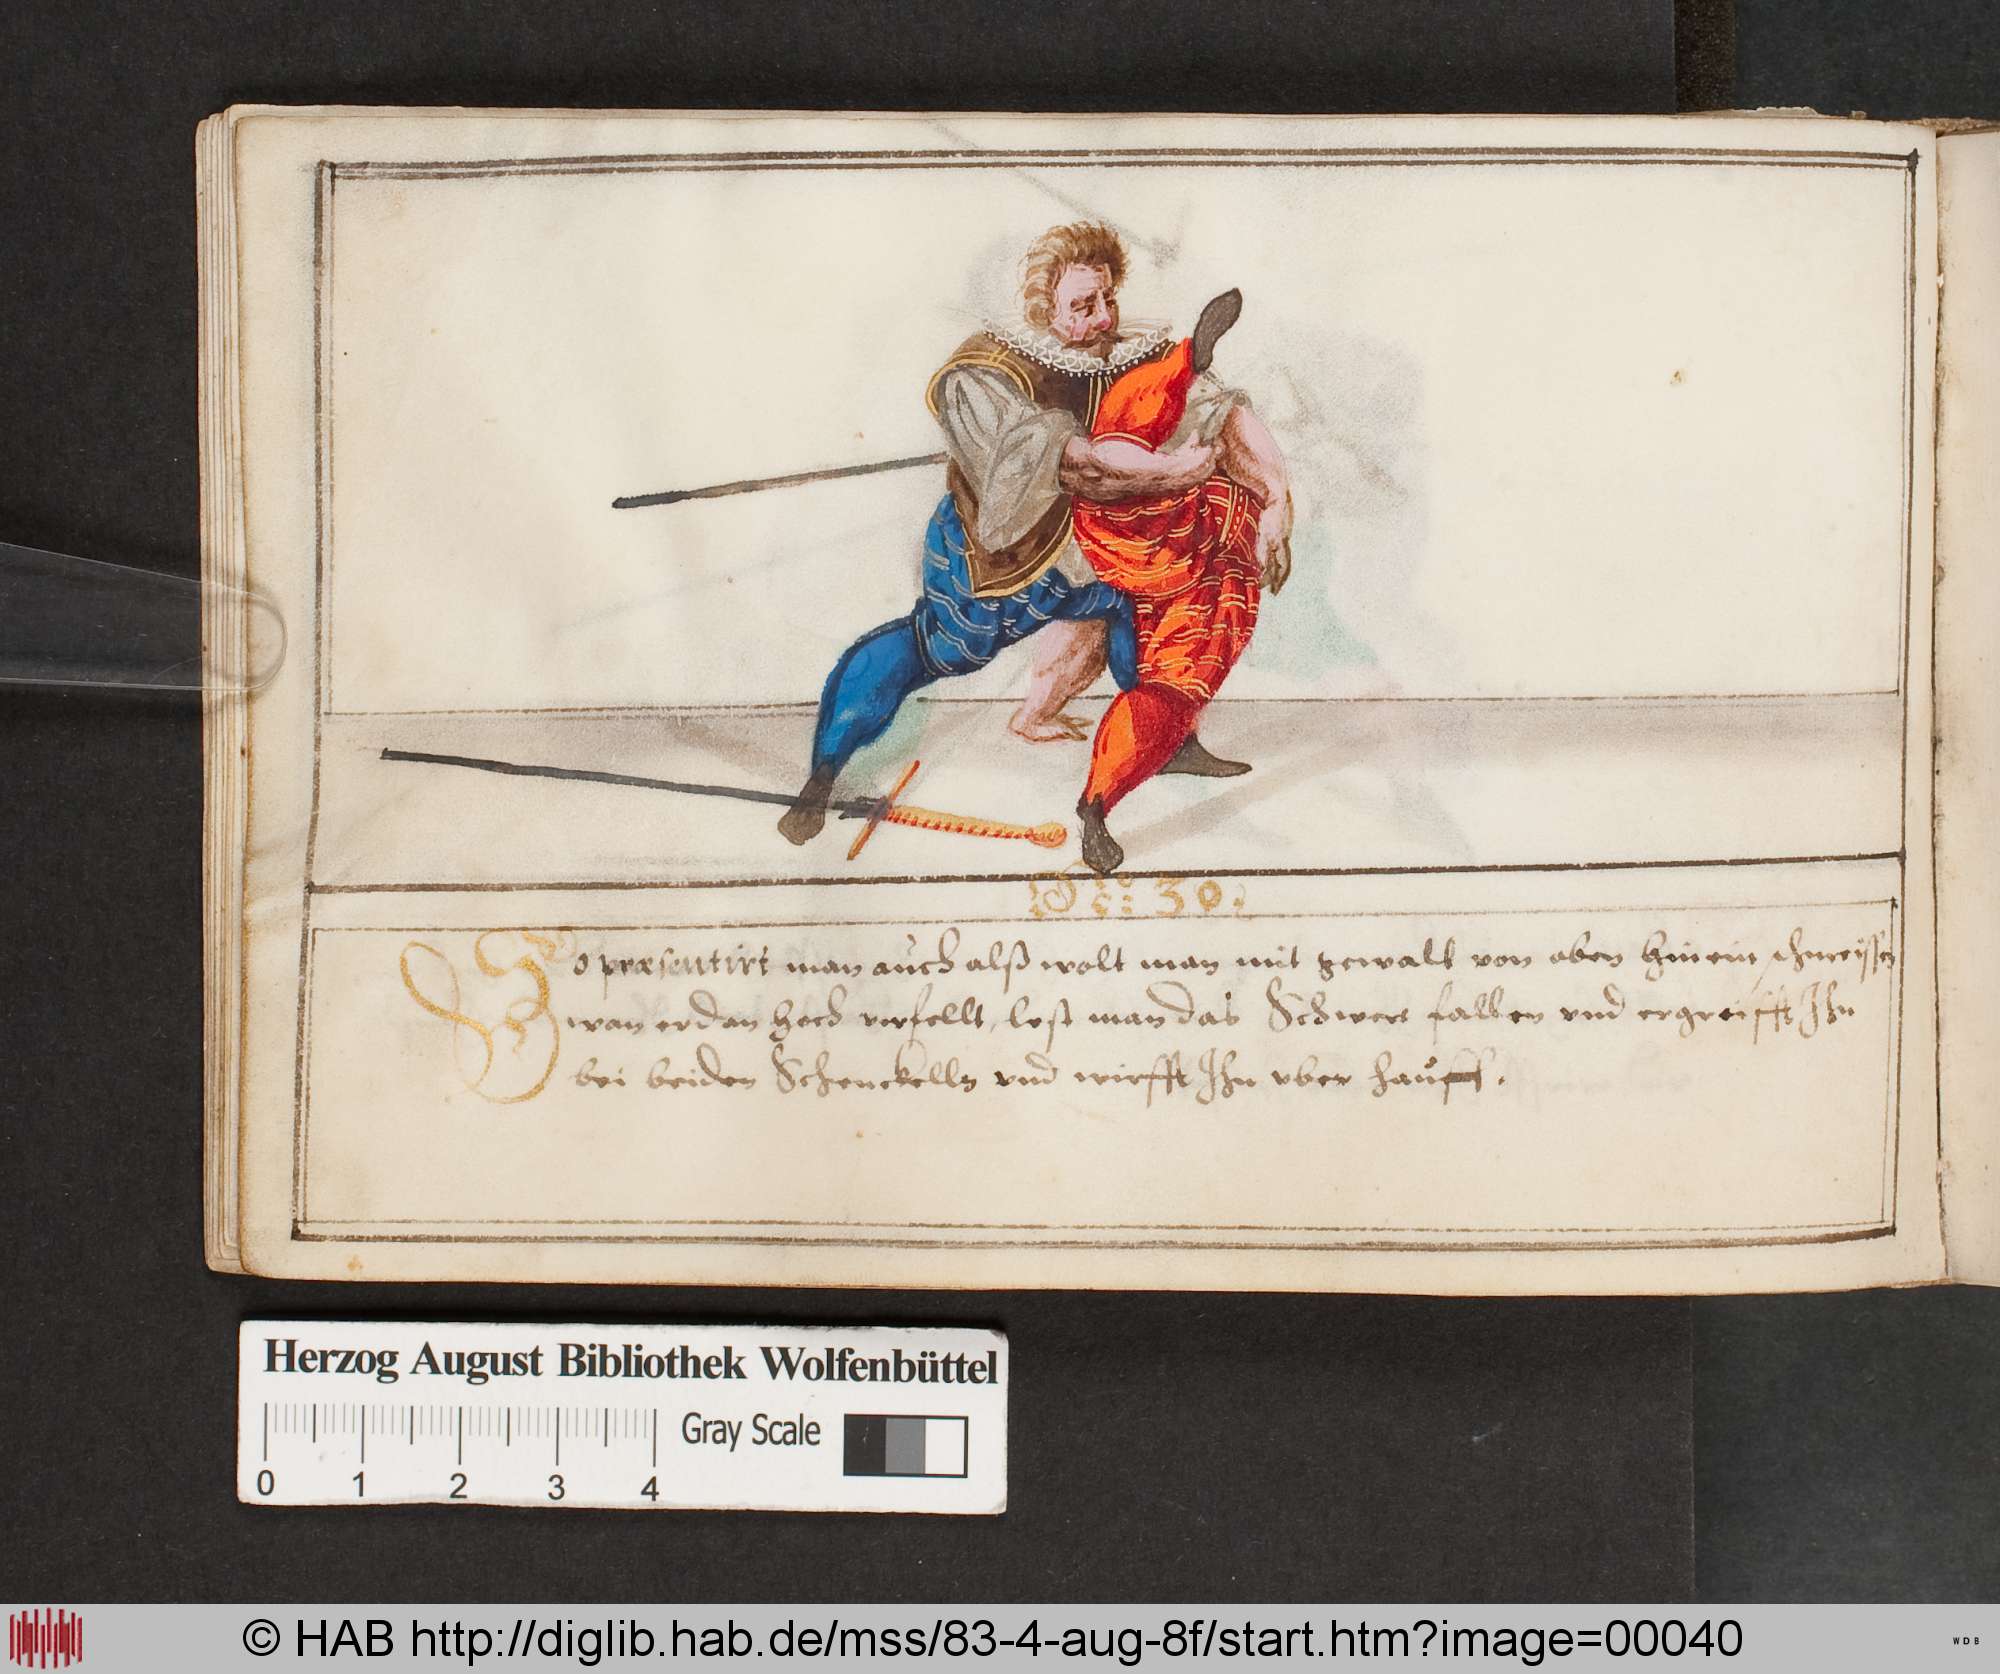 No: 30.
So præsentirt man auch alß wolt man mit gewalt von oben hinein schmeissen
wan er dan hoch verfellt, lest man das Schwert fallen vnd ergreifft Ihn
bei beiden Schenckelln vnd wirfft Ihn vber hauff.
Herzog August Bibliothek Wolfenbüttel
Gray Scale
0 1 2 3 4
© HAB http://diglib.hab.de/mss/83-4-aug-8f/start.htm?image=00040
WDB